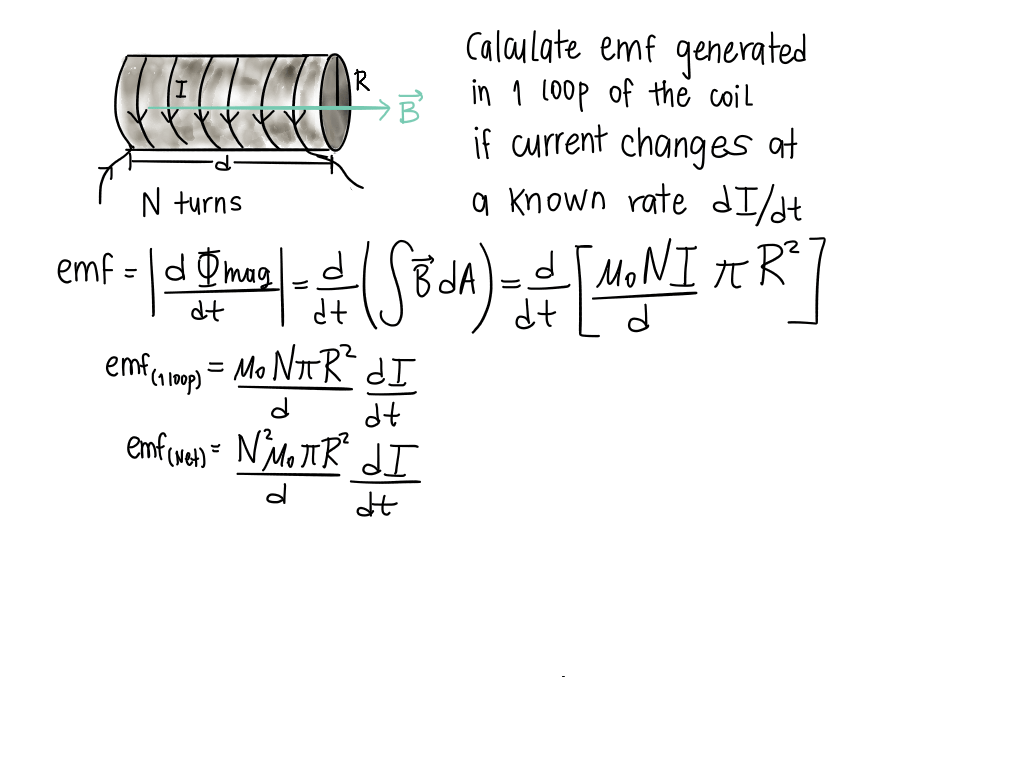 Calculate emf generated
in 1 loop of the coil
if current changes at
a known rate dI/dt
I
R
B⃗
d
N turns
emf = |dΦmag/dt| = d/dt (∫B⃗dA) = d/dt [μ₀NI/d πR²]
emf(1 loop) = μ₀NπR²/d dI/dt
emf(Net) = N²μ₀πR²/d dI/dt